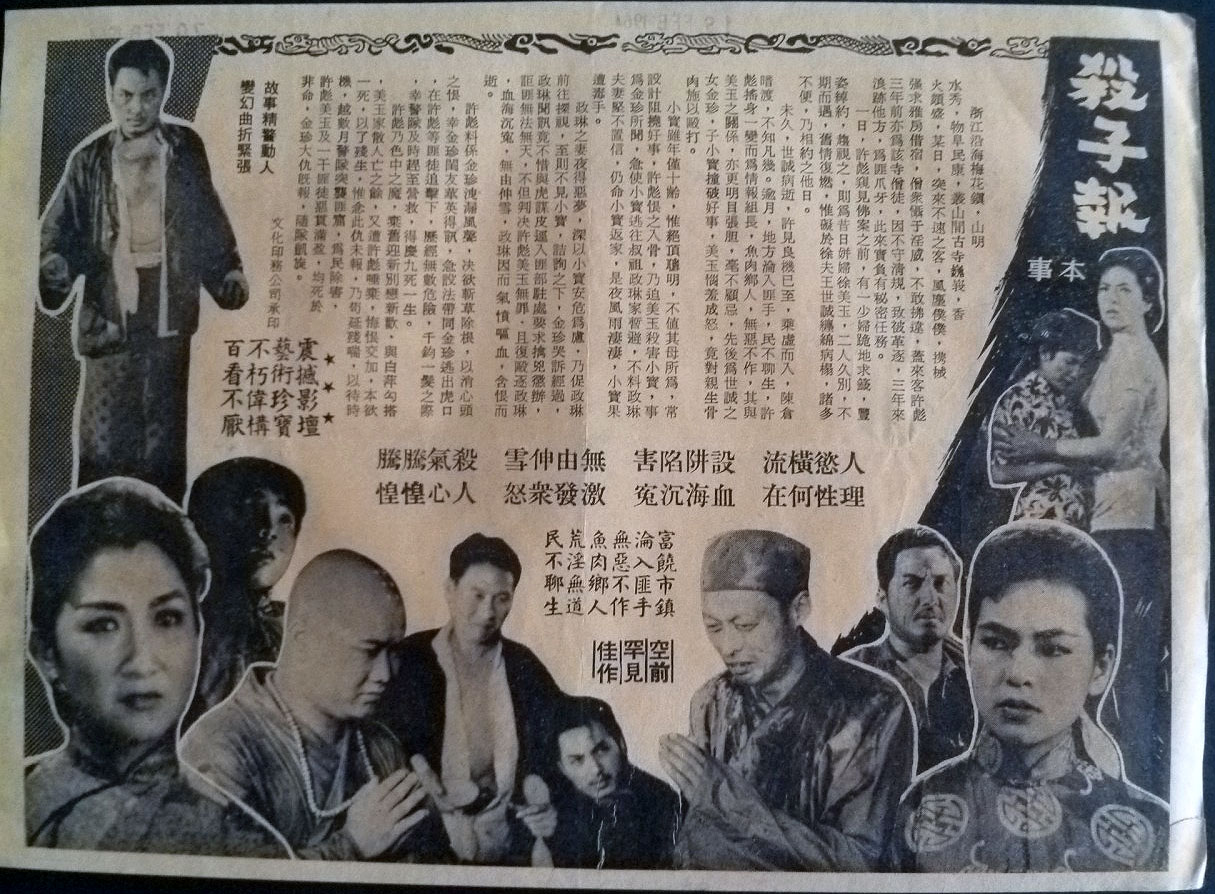 殺子報
本事
浙江沿海梅花鎮，山明
水秀，物阜民康，叢山間古寺巍峩，香
火頗盛，某日，突來不速之客，風塵僕僕，携械
强求雅房借宿，僧衆懾于淫威，不敢拂違，蓋來客許彪
三年前亦爲該寺僧徒，因不守清規，致被革逐，三年來
浪跡他方，爲匪爪牙，此來實負有秘密任務。
一日，許彪窺見佛案之前，有一少婦跪地求籤，豐
姿綽約，趨視之，則爲昔日姘婦徐美玉，二人久別，不
期而遇，舊情復燃，惟礙於徐夫王世誠纏綿病榻，諸多
不便，乃相約之他日。
未久，世誠病逝，許見良機已至，乘虛而入，陳倉
暗渡，不知凡幾。逾月，地方淪入匪手，民不聊生，許
彪搖身一變而爲情報組長，魚肉鄉人，無惡不作，其與
美玉之關係，亦更明目張胆，毫不顧忌，先後爲世誠之
女金珍，子小寳撞破好事，美玉惱羞成怒，竟對親生骨
肉施以毆打。
小寳雖年僅十齡，惟絕頂聰明，不值其母所爲，常
設計阻撓好事，許彪恨之入骨，乃迫美玉殺害小寳，事
爲金珍所聞，急使小寳逃往叔祖政琳家暫避，不料政琳
夫妻堅不置信，仍命小寳返家，是夜風雨淒淒，小寳果
遭毒手。
政琳之妻夜得惡夢，深以小寳安危爲慮，乃促政琳
前往探視，至則不見小寳，詰詢之下，金珍哭訴經過，
政琳聞訊竟不惜與虎謀皮逕入匪部駐處要求擒兇懲辦，
詎匪無法無天，不但判決許彪美玉無罪，且復毆逐政琳
，血海沉寃，無由仲雪，政琳因而氣憤嘔血，含恨而
逝。
許彪料係金珍洩漏風聲，决欲斬草除根，以消心頭
之恨，幸金珍閨友萃英得訊，急設法帶同金珍逃出虎口
，在許彪等匪徒追擊下，歷經無數危險，千鈞一髮之際
，幸警隊及時趕至營救，得慶九死一生。
許彪乃色中之魔，棄舊迎新別戀新歡，與白萍勾搭
，美玉家散人亡之餘，又遭許彪唾棄，悔恨交加，本欲
一死，以了殘生，惟念此仇未報，乃苟延殘喘，以待時
機，越數月警隊突襲匪窟，爲民除害，
許彪美玉及一干匪徒惡貫滿盈，均死於
非命，金珍大仇旣報，隨隊凱旋。
文化印務公司承印
故事精警動人
變幻曲折緊張
震撼影壇
藝術珍寶
不朽偉構
百看不厭
人慾橫流 設阱陷害 無由伸雪 殺氣騰騰
理性何在 血海沉寃 激發衆怒 人心惶惶
富饒市鎮
淪入匪手
無惡不作
魚肉鄉人
荒淫無道
民不聊生
空前
罕見
佳作